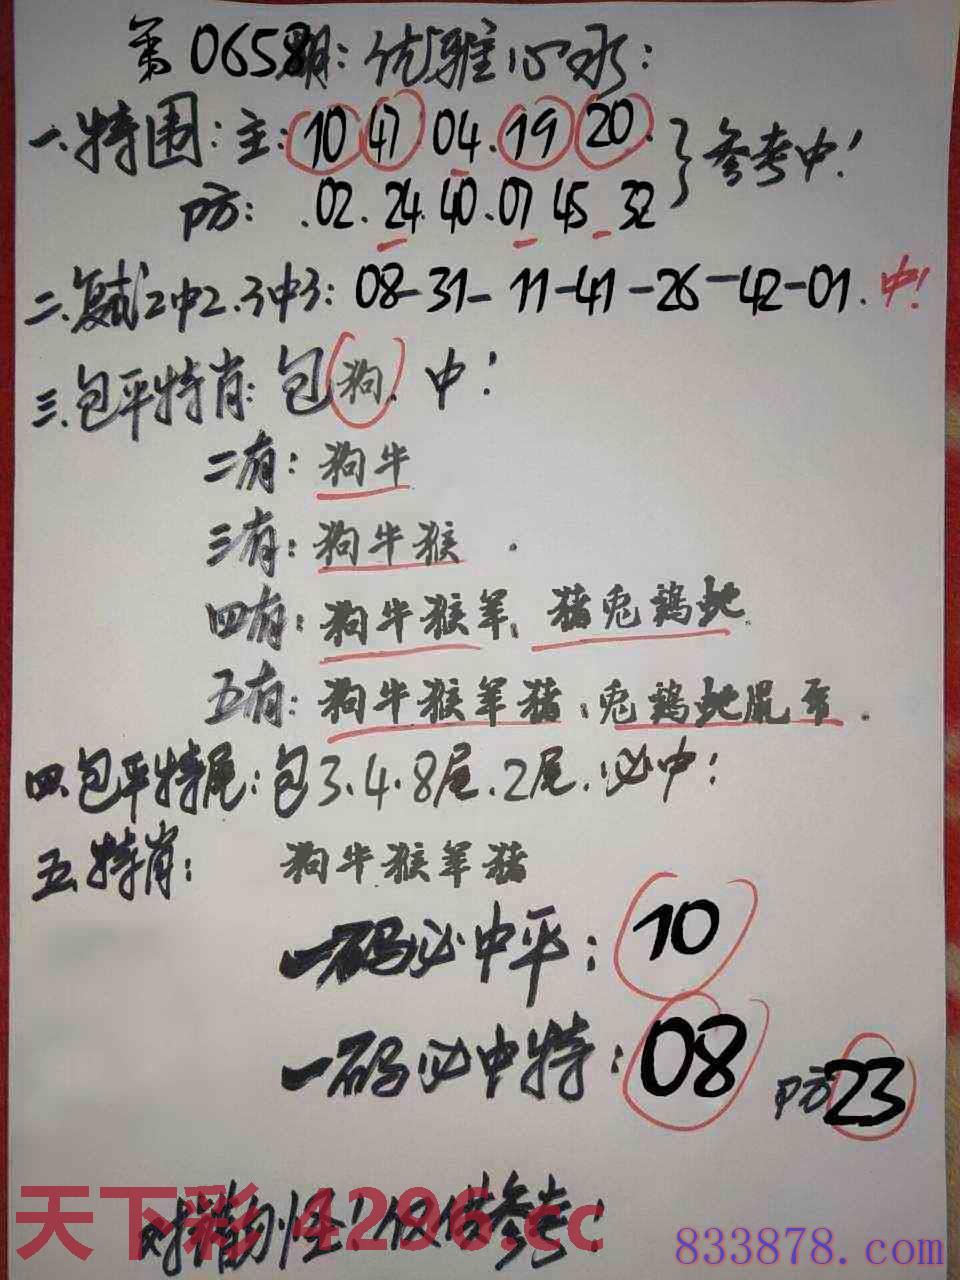 第0658期: 优雅心水:
一.特围:主:10 47 04.19 20. 参考中!
防: .02.24.40.07 45 32
二.复试2中2.3中3: 08-31-11-41-26-42-01.中!
三.包平特肖:包狗.中!
二有:狗牛
三有:狗牛猴.
四有:狗牛猴羊,猪兔鸡蛇
五有:狗牛猴羊猪;兔鸡蛇鼠.
四.包平特尾:包3.4.8尾.2尾.必中:
五.特肖: 狗牛猴羊猪
一码必中平: 10
一码必中特: 08 防23
对错勿怪!仅供参考!
天下彩 4296.cc
833878.com